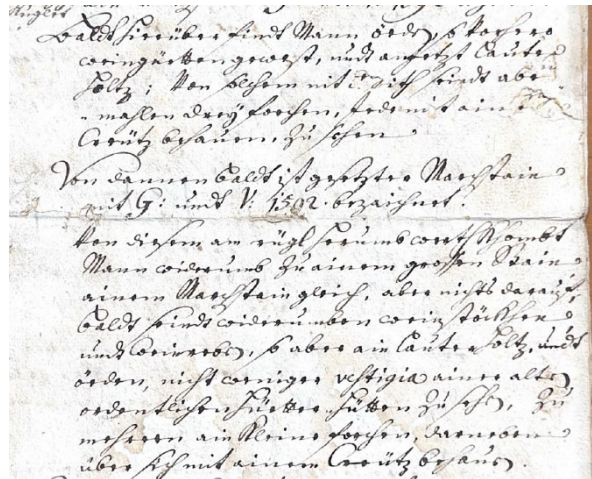 Baldt hierüber findt Mann öeden, so vorhero
weingärtten gewest, undt anietzt lauter
holtz; Von solchem nit seindt aber
mahlen drey forchen, iede mit ain
Creütz behauen, zu sehen
Von dannen baldt ist gesetzter Marchstain
mit G: undt V: 1592. bezaichnet.
Von diesem am rügl herumbwerts khombt
Mann widerumb zu ainem grossen Stain
ainem Marchstain gleich, aber nichts darauf,
baldt seindt widerumben weinstöckhen
undt weinreben, so aber ain lauter holtz, undt
öeden, nicht weniger vestigia ainer alten
ordentlichen hüetter hütten zu sehen, Zu
mehrern ain kleine forchen, darneben
über sich mit ainem Creütz behauen.